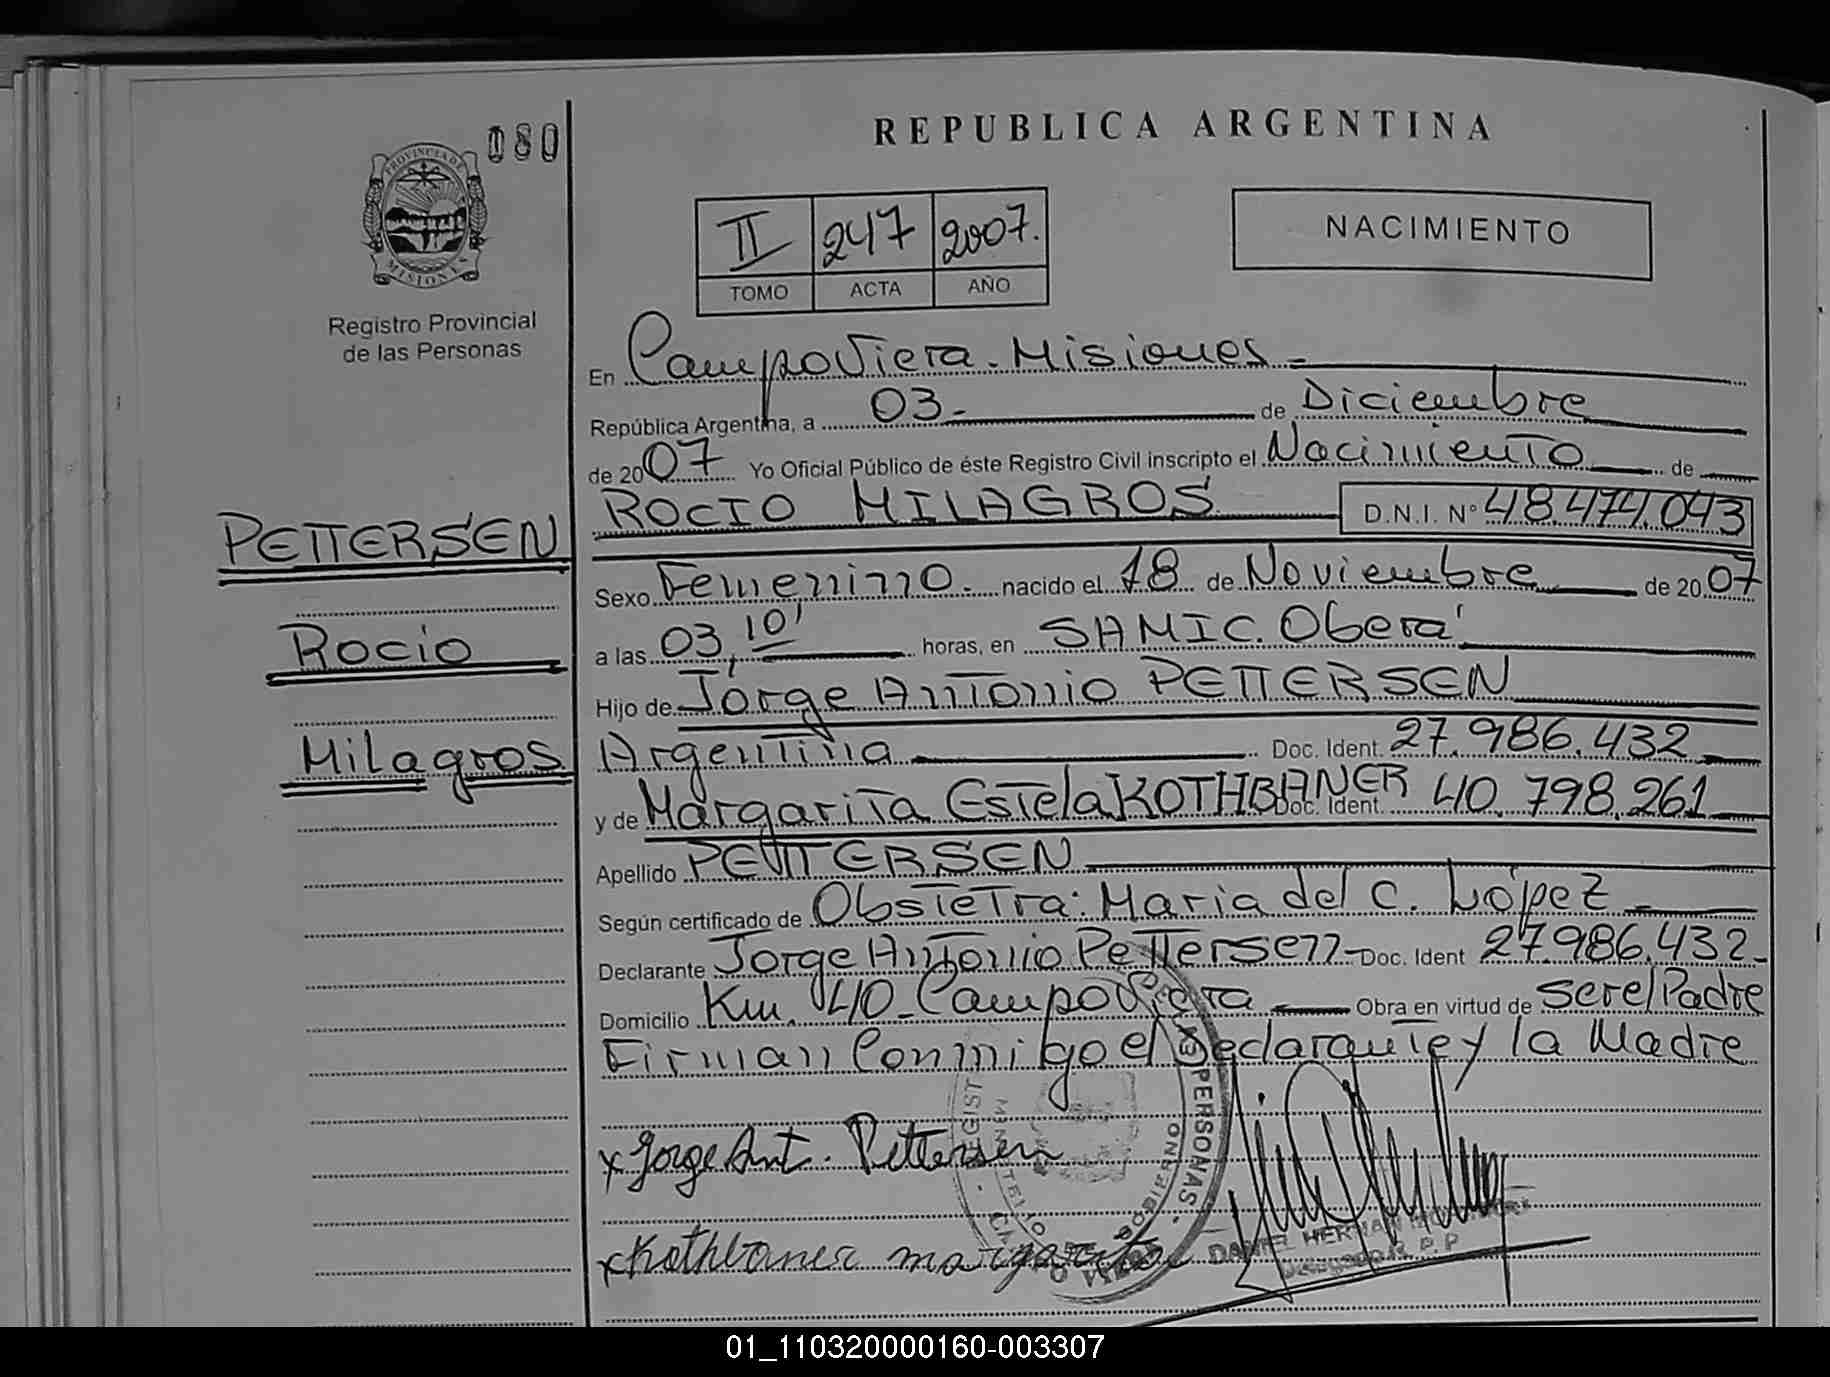 080
PROVINCIA DE
MISIONES
Registro Provincial
de las Personas
PETTERSEN
Rocio
Milagros
REPUBLICA ARGENTINA
II 247 2007.
TOMO ACTA AÑO
NACIMIENTO
En Campo Viera - Misiones -
República Argentina, a 03 - de Diciembre
de 2007 Yo Oficial Público de éste Registro Civil inscripto el Nacimiento de
ROCIO MILAGROS D.N.I. Nº 48.474.043
Sexo Femenino. nacido el 18 de Noviembre de 2007
a las 03,10' horas, en SAMIC. Oberá
Hijo de Jorge Antonio PETTERSEN
Argentina Doc. Ident. 27.986.432
y de Margarita Estela KOTHBANER Doc. Ident. 40.798.261
Apellido PETTERSEN
Según certificado de Obstetra: Maria del C. López
Declarante Jorge Antonio Pettersen - Doc. Ident 27.986.432-
Domicilio Km. 40 - Campo Viera Obra en virtud de ser el Padre
Firman Conmigo el Declarante y la Madre
x Jorge Ant. Pettersen
x Kothbaner margarita
PERSONAS
DANIEL HERNAN
01_110320000160-003307